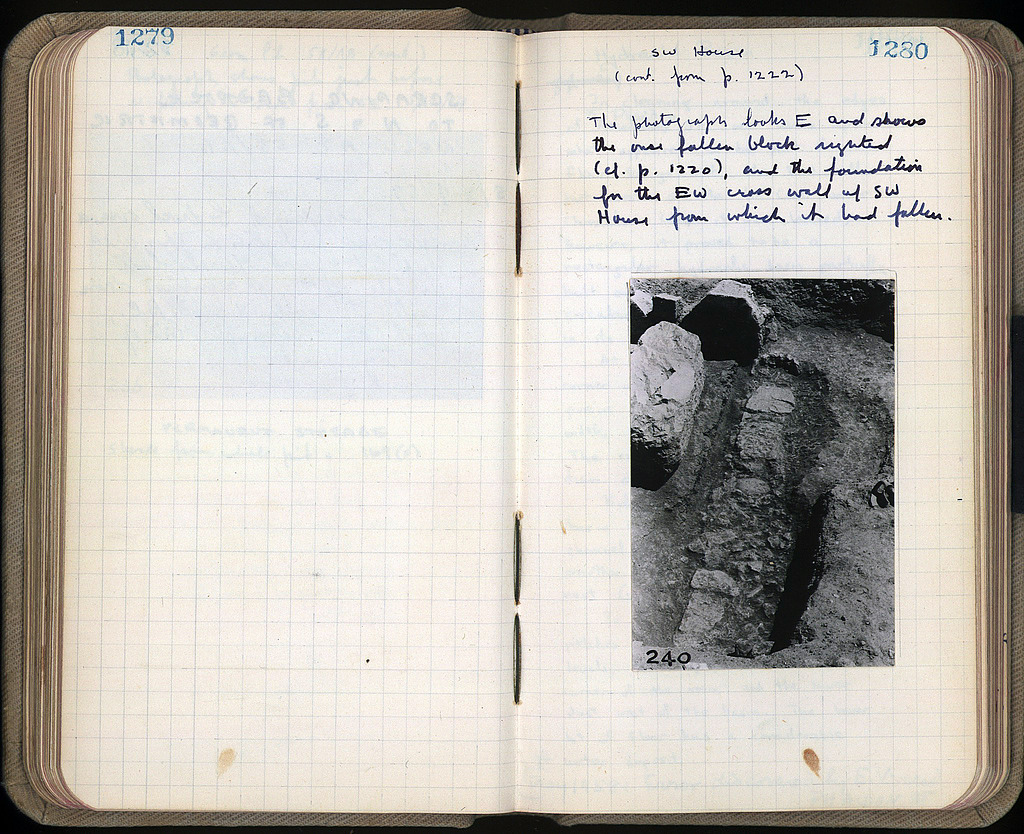 1279
1280
SW House
(cont. from p. 1222)
The photograph looks E and shows
the once fallen block righted
(cf. p. 1220), and the foundation
for the EW cross wall of SW
House from which it had fallen.
240